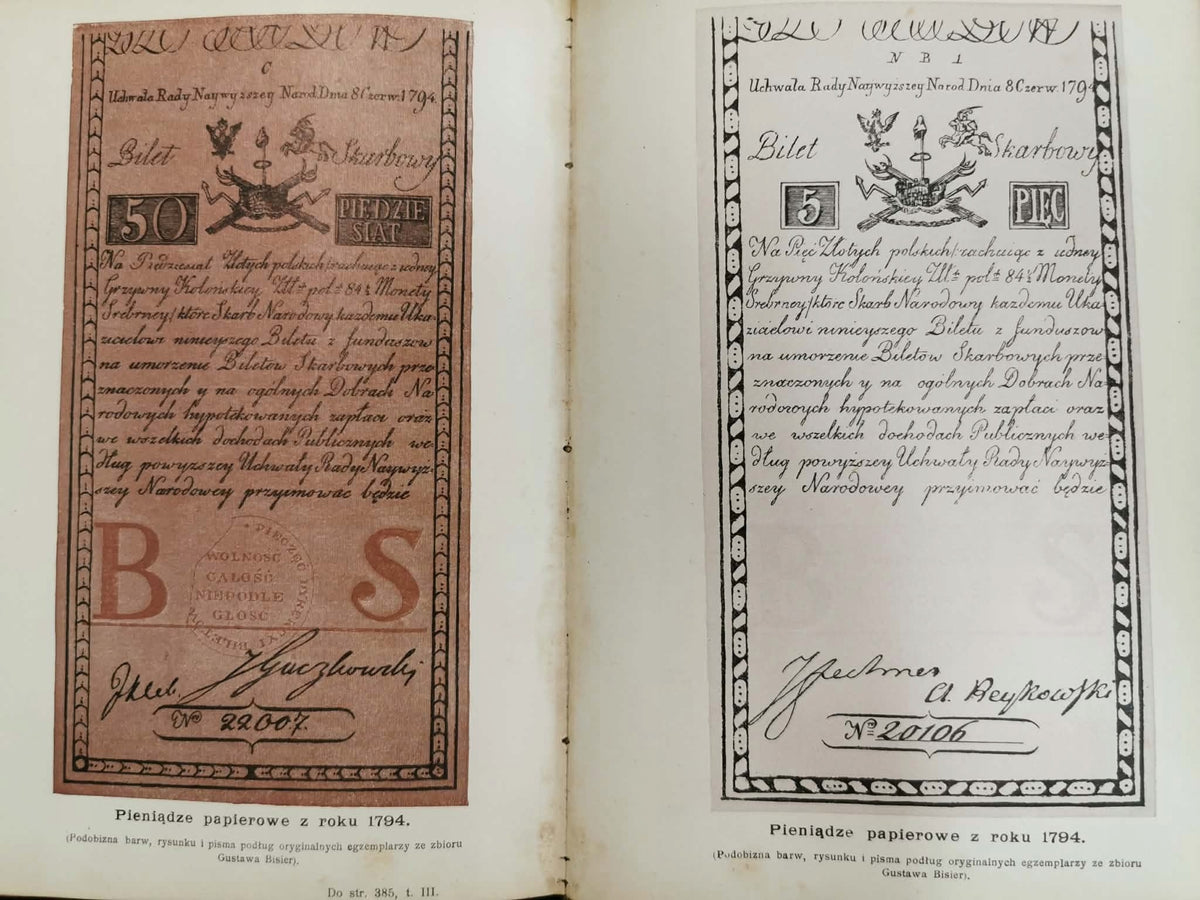 C
Uchwała Rady Naywyzszey Narod Dnia 8 Czerw. 1794.
Bilet Skarbowy
50 PIĘDZIE
SIAT
Na Piędziesiat Złotych polskich/rachuiąc z iedney
Grzywny Kolońskiey Złł. pol. 84½ Monety
Srebrney/które Skarb Narodowy kazdemu Uka-
zicielowi ninieyszego Biletu z funduszow
na umorzenie Biletów Skarbowych prze-
znaczonych y na ogólnych Dobrach Na-
rodowych hypotekowanych zapłaci oraz
we wszelkich dochodach Publicznych we-
dług powyzszey Uchwały Rady Naywyz-
szey Narodowey przyimować będzie
B S
PIECZĘĆ DYREKCYI BILETOW
WOLNOSC
CAŁOŚĆ
NIEPODLE
GŁOSC
No 22007.
Pieniądze papierowe z roku 1794.
(Podobizna barw, rysunku i pisma podług oryginalnych egzemplarzy ze zbioru
Gustawa Bisier).
Do str. 385, t. III.
N B 1
Uchwała Rady Naywyższey Narod Dnia 8 Czerw. 1794
Bilet Skarbowy
5 PIĘC
Na Pięć Złotych polskich/rachuiąc z iedney
Grzywny Kolońskiey Złł. pol. 84½ Monety
Srebrney/które Skarb Narodowy kazdemu Uka-
zicielowi ninieyszego Biletu z funduszow
na umorzenie Biletów Skarbowych prze-
znaczonych y na ogólnych Dobrach Na-
rodowych hypotekowanych zapłaci oraz
we wszelkich dochodach Publicznych we-
dług powyższey Uchwały Rady Naywyż-
szey Narodowey przyimować będzie
A. Reykowski
No 20106
Pieniądze papierowe z roku 1794.
(Podobizna barw, rysunku i pisma podług oryginalnych egzemplarzy ze zbioru
Gustawa Bisier).